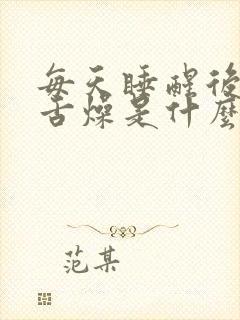 每天睡醒後
舌燥是什麼
范某